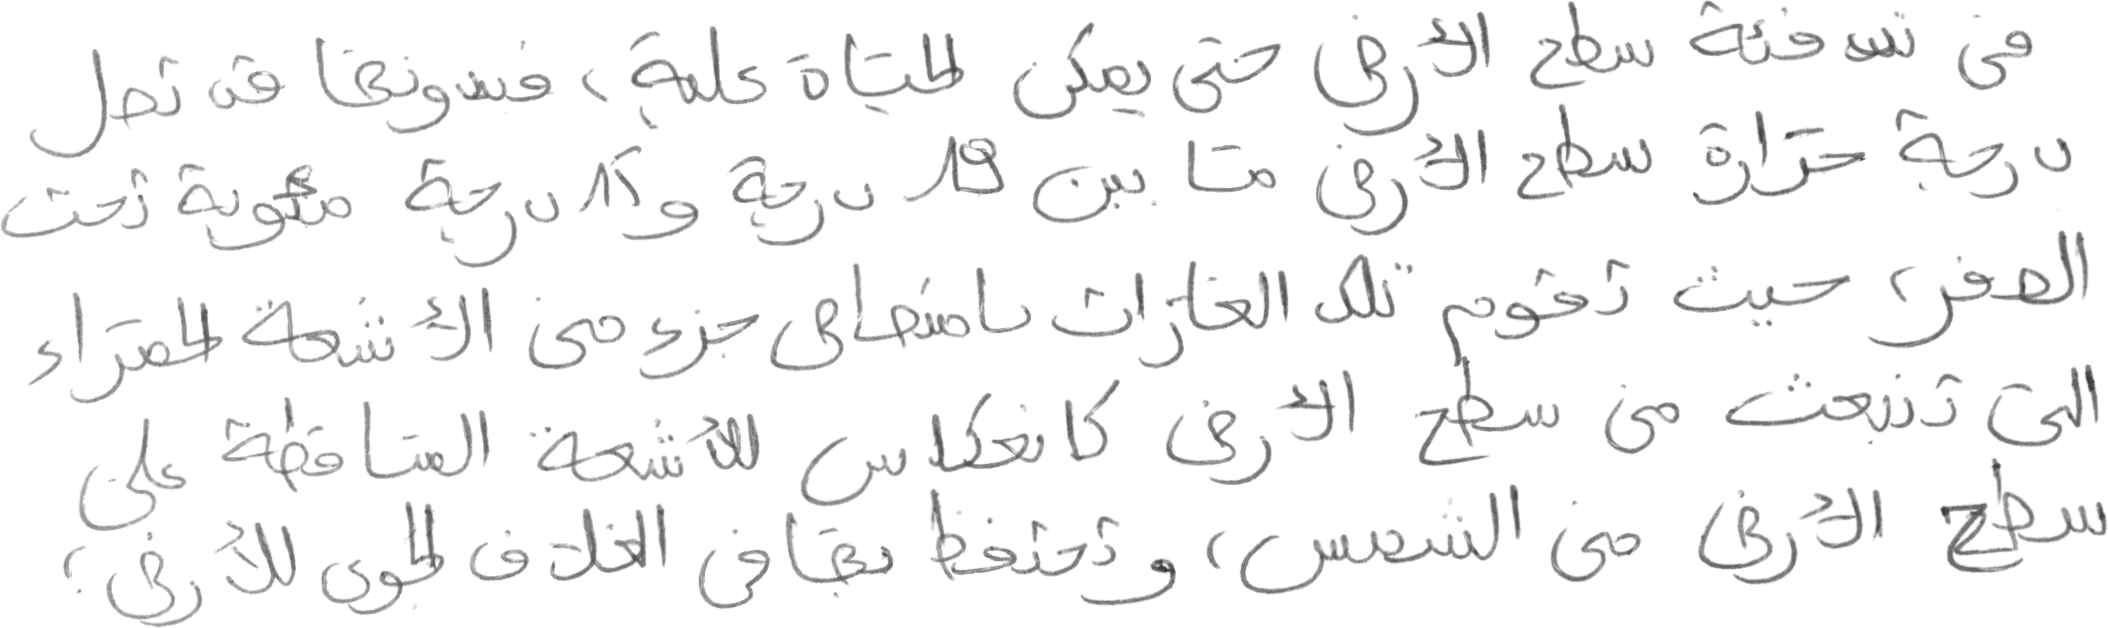 في تسخئة سطح الأرض حتى يمكن الحياة علية، فبدونها قد تصل
درجة حرارة سطح الأرض ما بين 19 درجة و15 درجة مئوية تحت
الصفر، حيث تقوم تلك الغازات بامتصاص جزء من الأشعة الحمراء
التى تنبعث من سطح الأرض كانعكاس للأشعة الساقطة على
سطح الأرض من الشمس، وتحتفظ بها في الغلاف الجوى للأرض؛